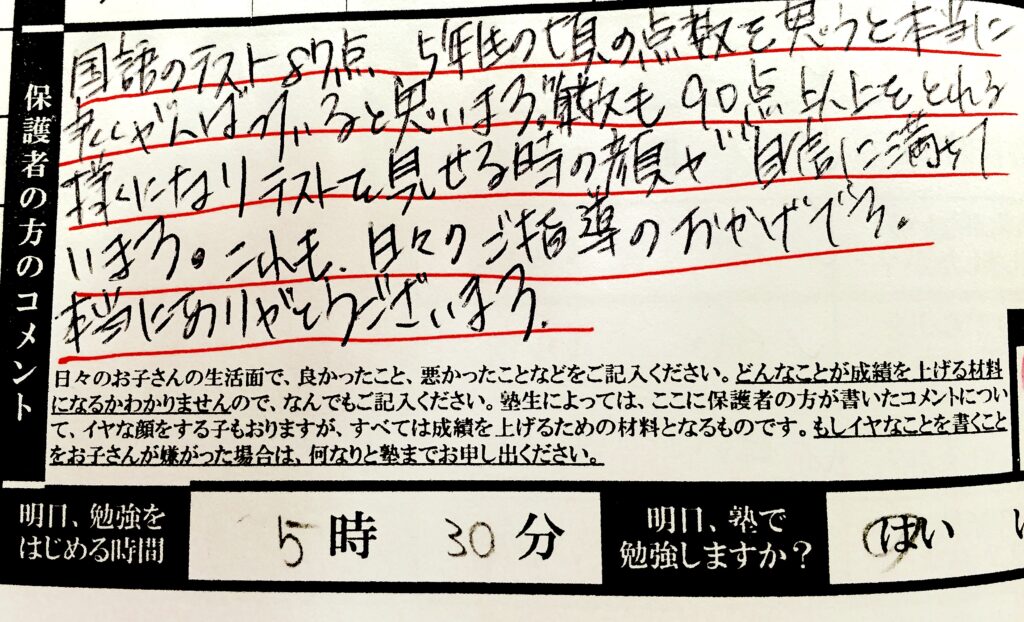 保護者の方のコメント
国語のテスト87点、5年生の頃の点数を思うと本当に
良くがんばっていると思います。算数も90点以上をとれる
様くになりテストを見せる時の顔が自信に満ちて
います。これも、日々のご指導のおかげです。
本当にありがとうございます。
日々のお子さんの生活面で、良かったこと、悪かったことなどをご記入ください。どんなことが成績を上げる材料
になるかわかりませんので、なんでもご記入ください。塾生によっては、ここに保護者の方が書いたコメントについ
て、イヤな顔をする子もおりますが、すべては成績を上げるための材料となるものです。もしイヤなことを書くこと
をお子さんが嫌がった場合は、何なりと塾までお申し出ください。
明日、勉強を
はじめる時間
5時30分
明日、塾で
勉強しますか？
はい